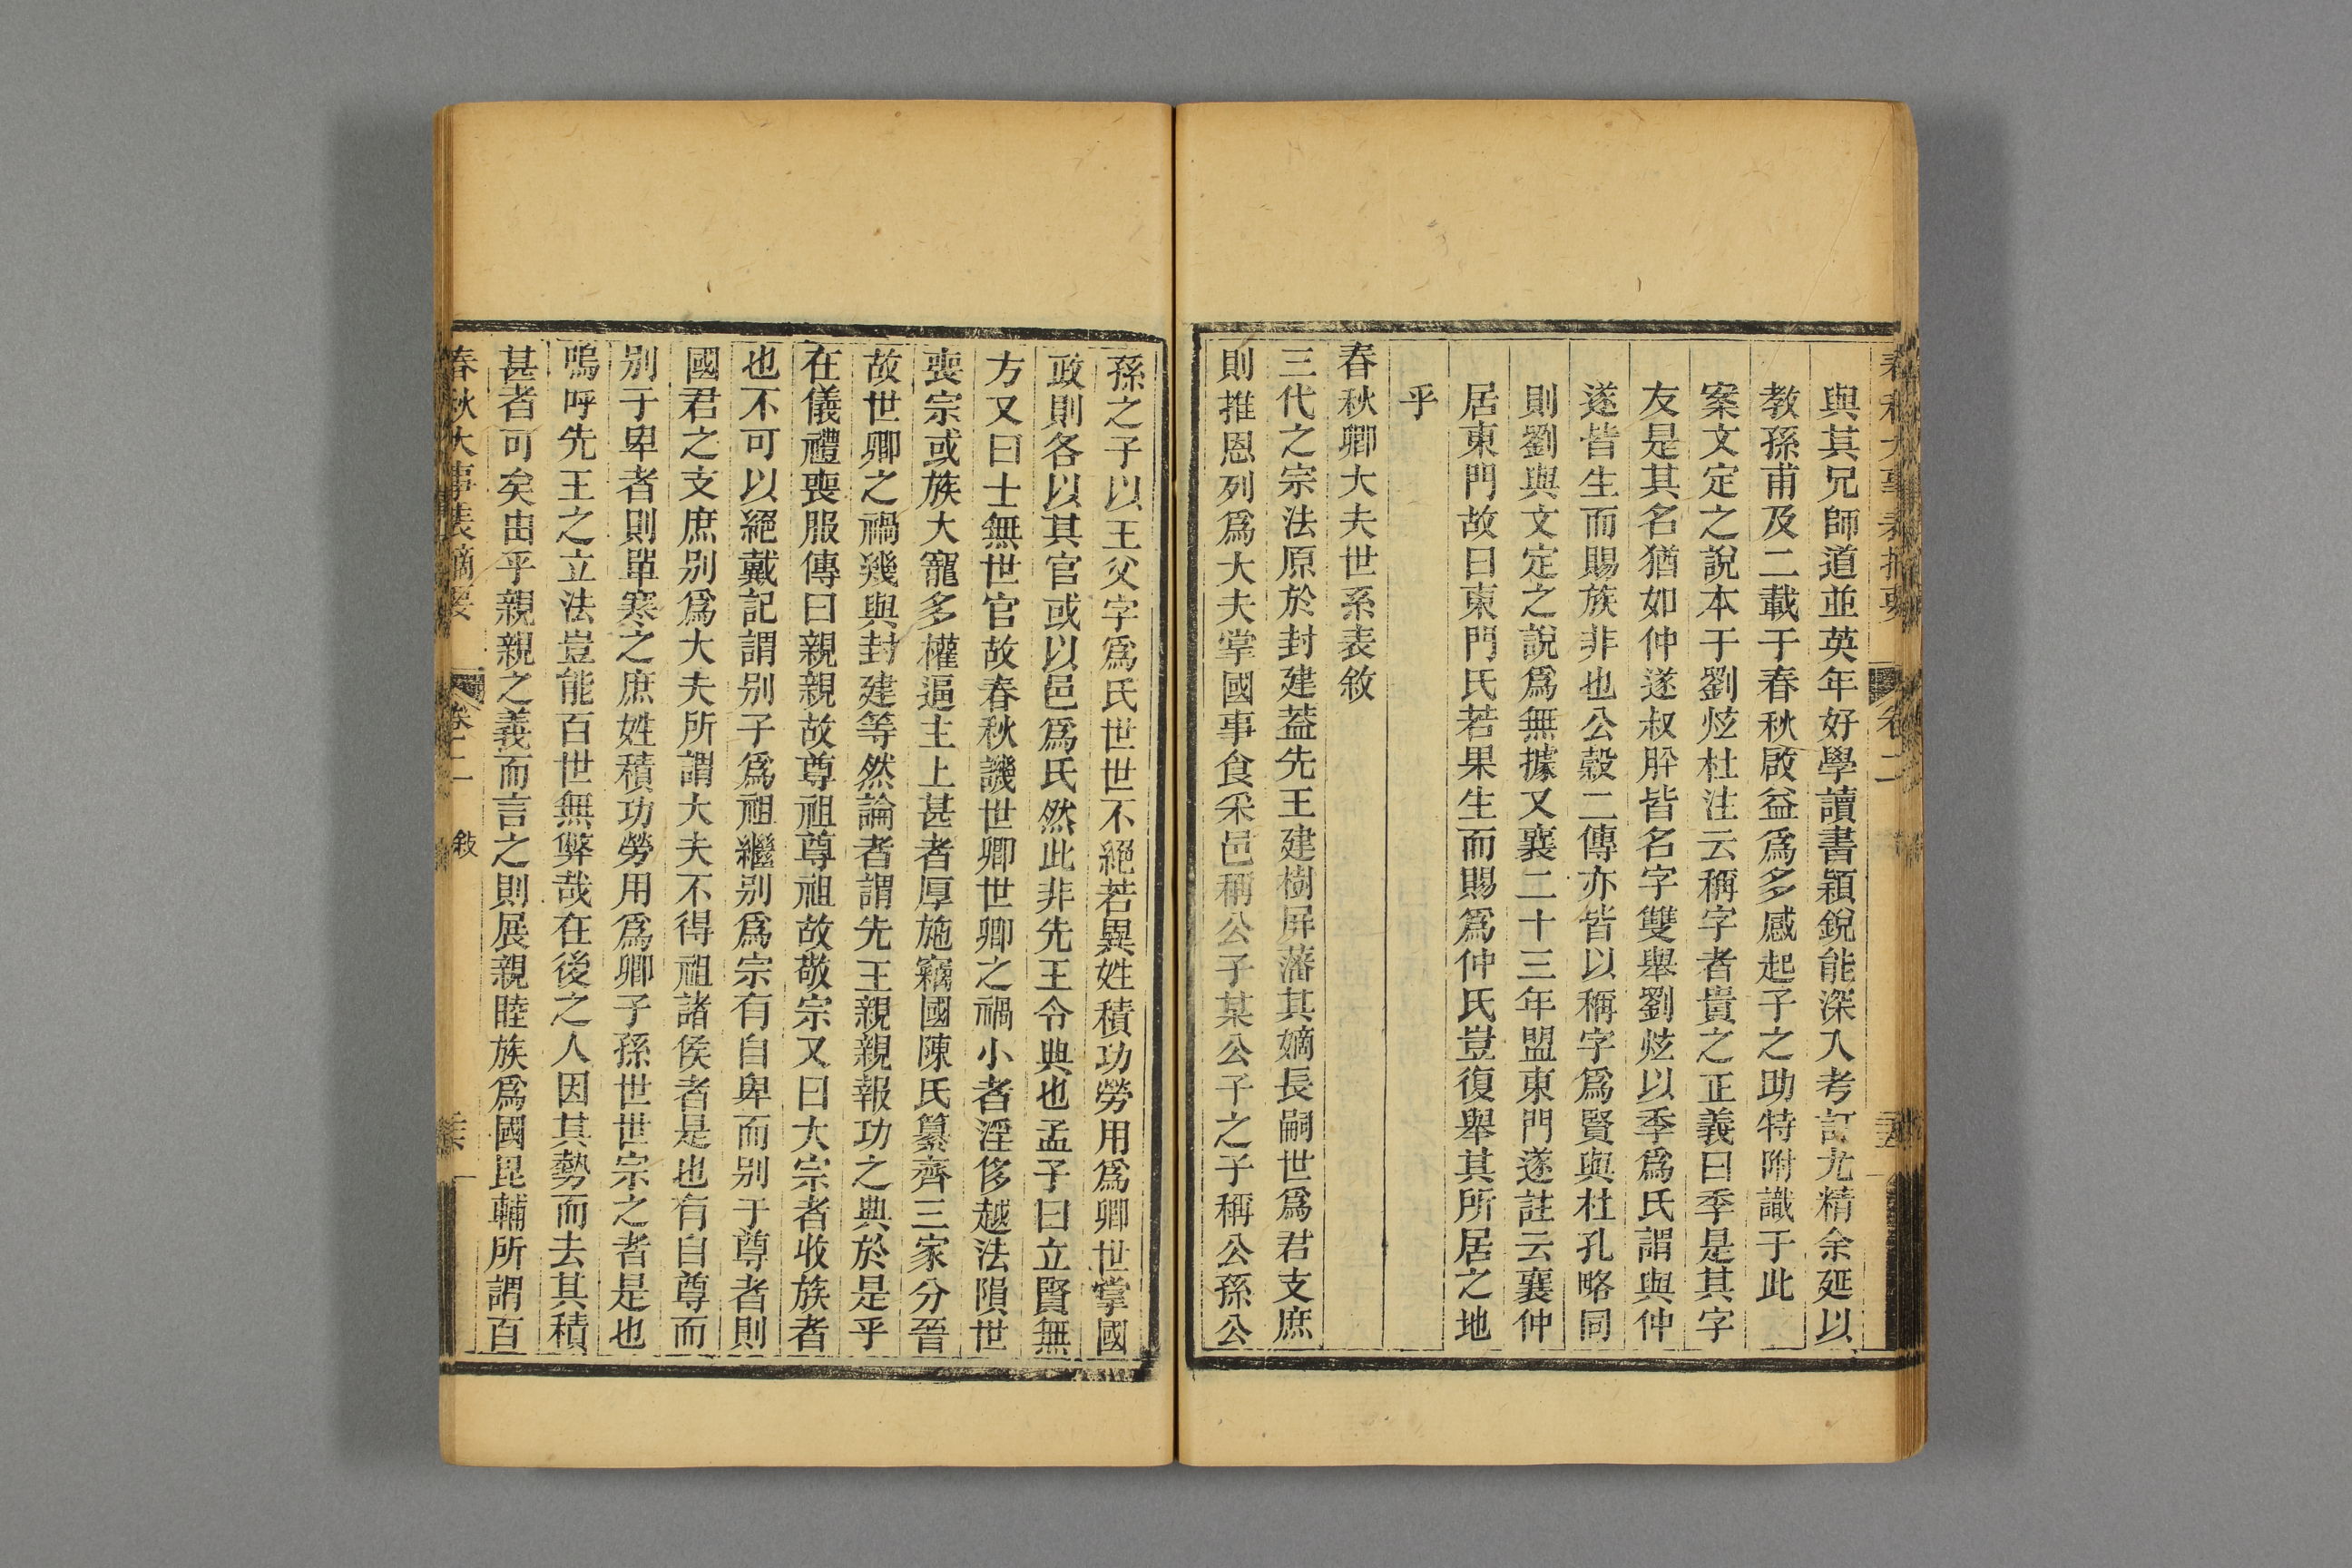 春秋大事表摘要 卷二
與其兄師道並英年好學讀書穎銳能深入考訂尤精余延以
教孫甫及二載于春秋啟益爲多感起予之助特附識于此
案文定之說本于劉炫杜注云稱字者貴之正義曰季是其字
友是其名猶如仲遂叔肸皆名字雙舉劉炫以季爲氏謂與仲
遂皆生而賜族非也公穀二傳亦皆以稱字爲賢與杜孔略同
則劉與文定之說爲無據又襄二十三年盟東門遂註云襄仲
居東門故曰東門氏若果生而賜爲仲氏豈復舉其所居之地
乎
春秋卿大夫世系表敘
三代之宗法原於封建蓋先王建樹屏藩其嫡長嗣世爲君支庶
則推恩列爲大夫掌國事食采邑稱公子某公子之子稱公孫公
孫之子以王父字爲氏世世不絕若異姓積功勞用爲卿世掌國
政則各以其官或以邑爲氏然此非先王令典也孟子曰立賢無
方又曰士無世官故春秋譏世卿世卿之禍小者淫侈越法隕世
喪宗或族大寵多權逼主上甚者厚施竊國陳氏纂齊三家分晉
故世卿之禍幾與封建等然論者謂先王親親報功之典於是乎
在儀禮喪服傳曰親親故尊祖尊祖故敬宗又曰大宗者收族者
也不可以絕戴記謂別子爲祖繼別爲宗有自卑而別于尊者則
國君之支庶別爲大夫所謂大夫不得祖諸侯者是也有自尊而
別于卑者則單寒之庶姓積功勞用爲卿子孫世世宗之者是也
嗚呼先王之立法豈能百世無弊哉在後之人因其勢而去其積
甚者可矣由乎親親之義而言之則展親睦族爲國毘輔所謂百
春秋大事表摘要 卷二 敘